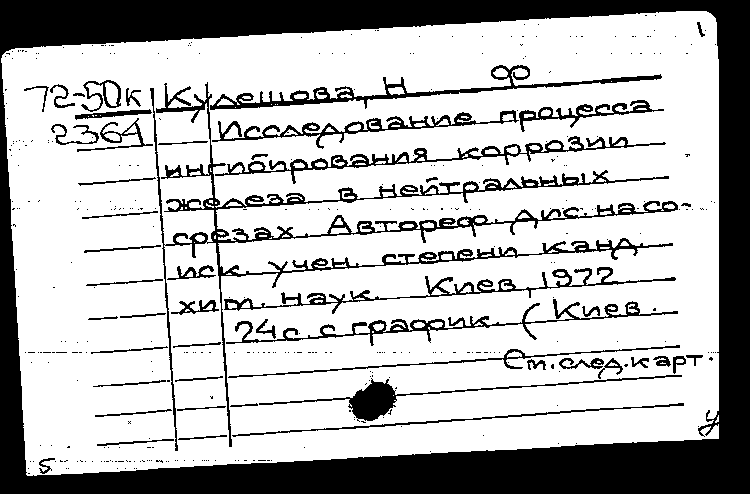 1
72-50к Кулешова, Н Ф
2364 Исследование процесса
ингибирования коррозии
железа в нейтральных
срезах. Автореф. дис. на со-
иск. учен. степени канд.
хим. наук. Киев, 1972
24 с. с график. (Киев.
См. след. карт.
5 У